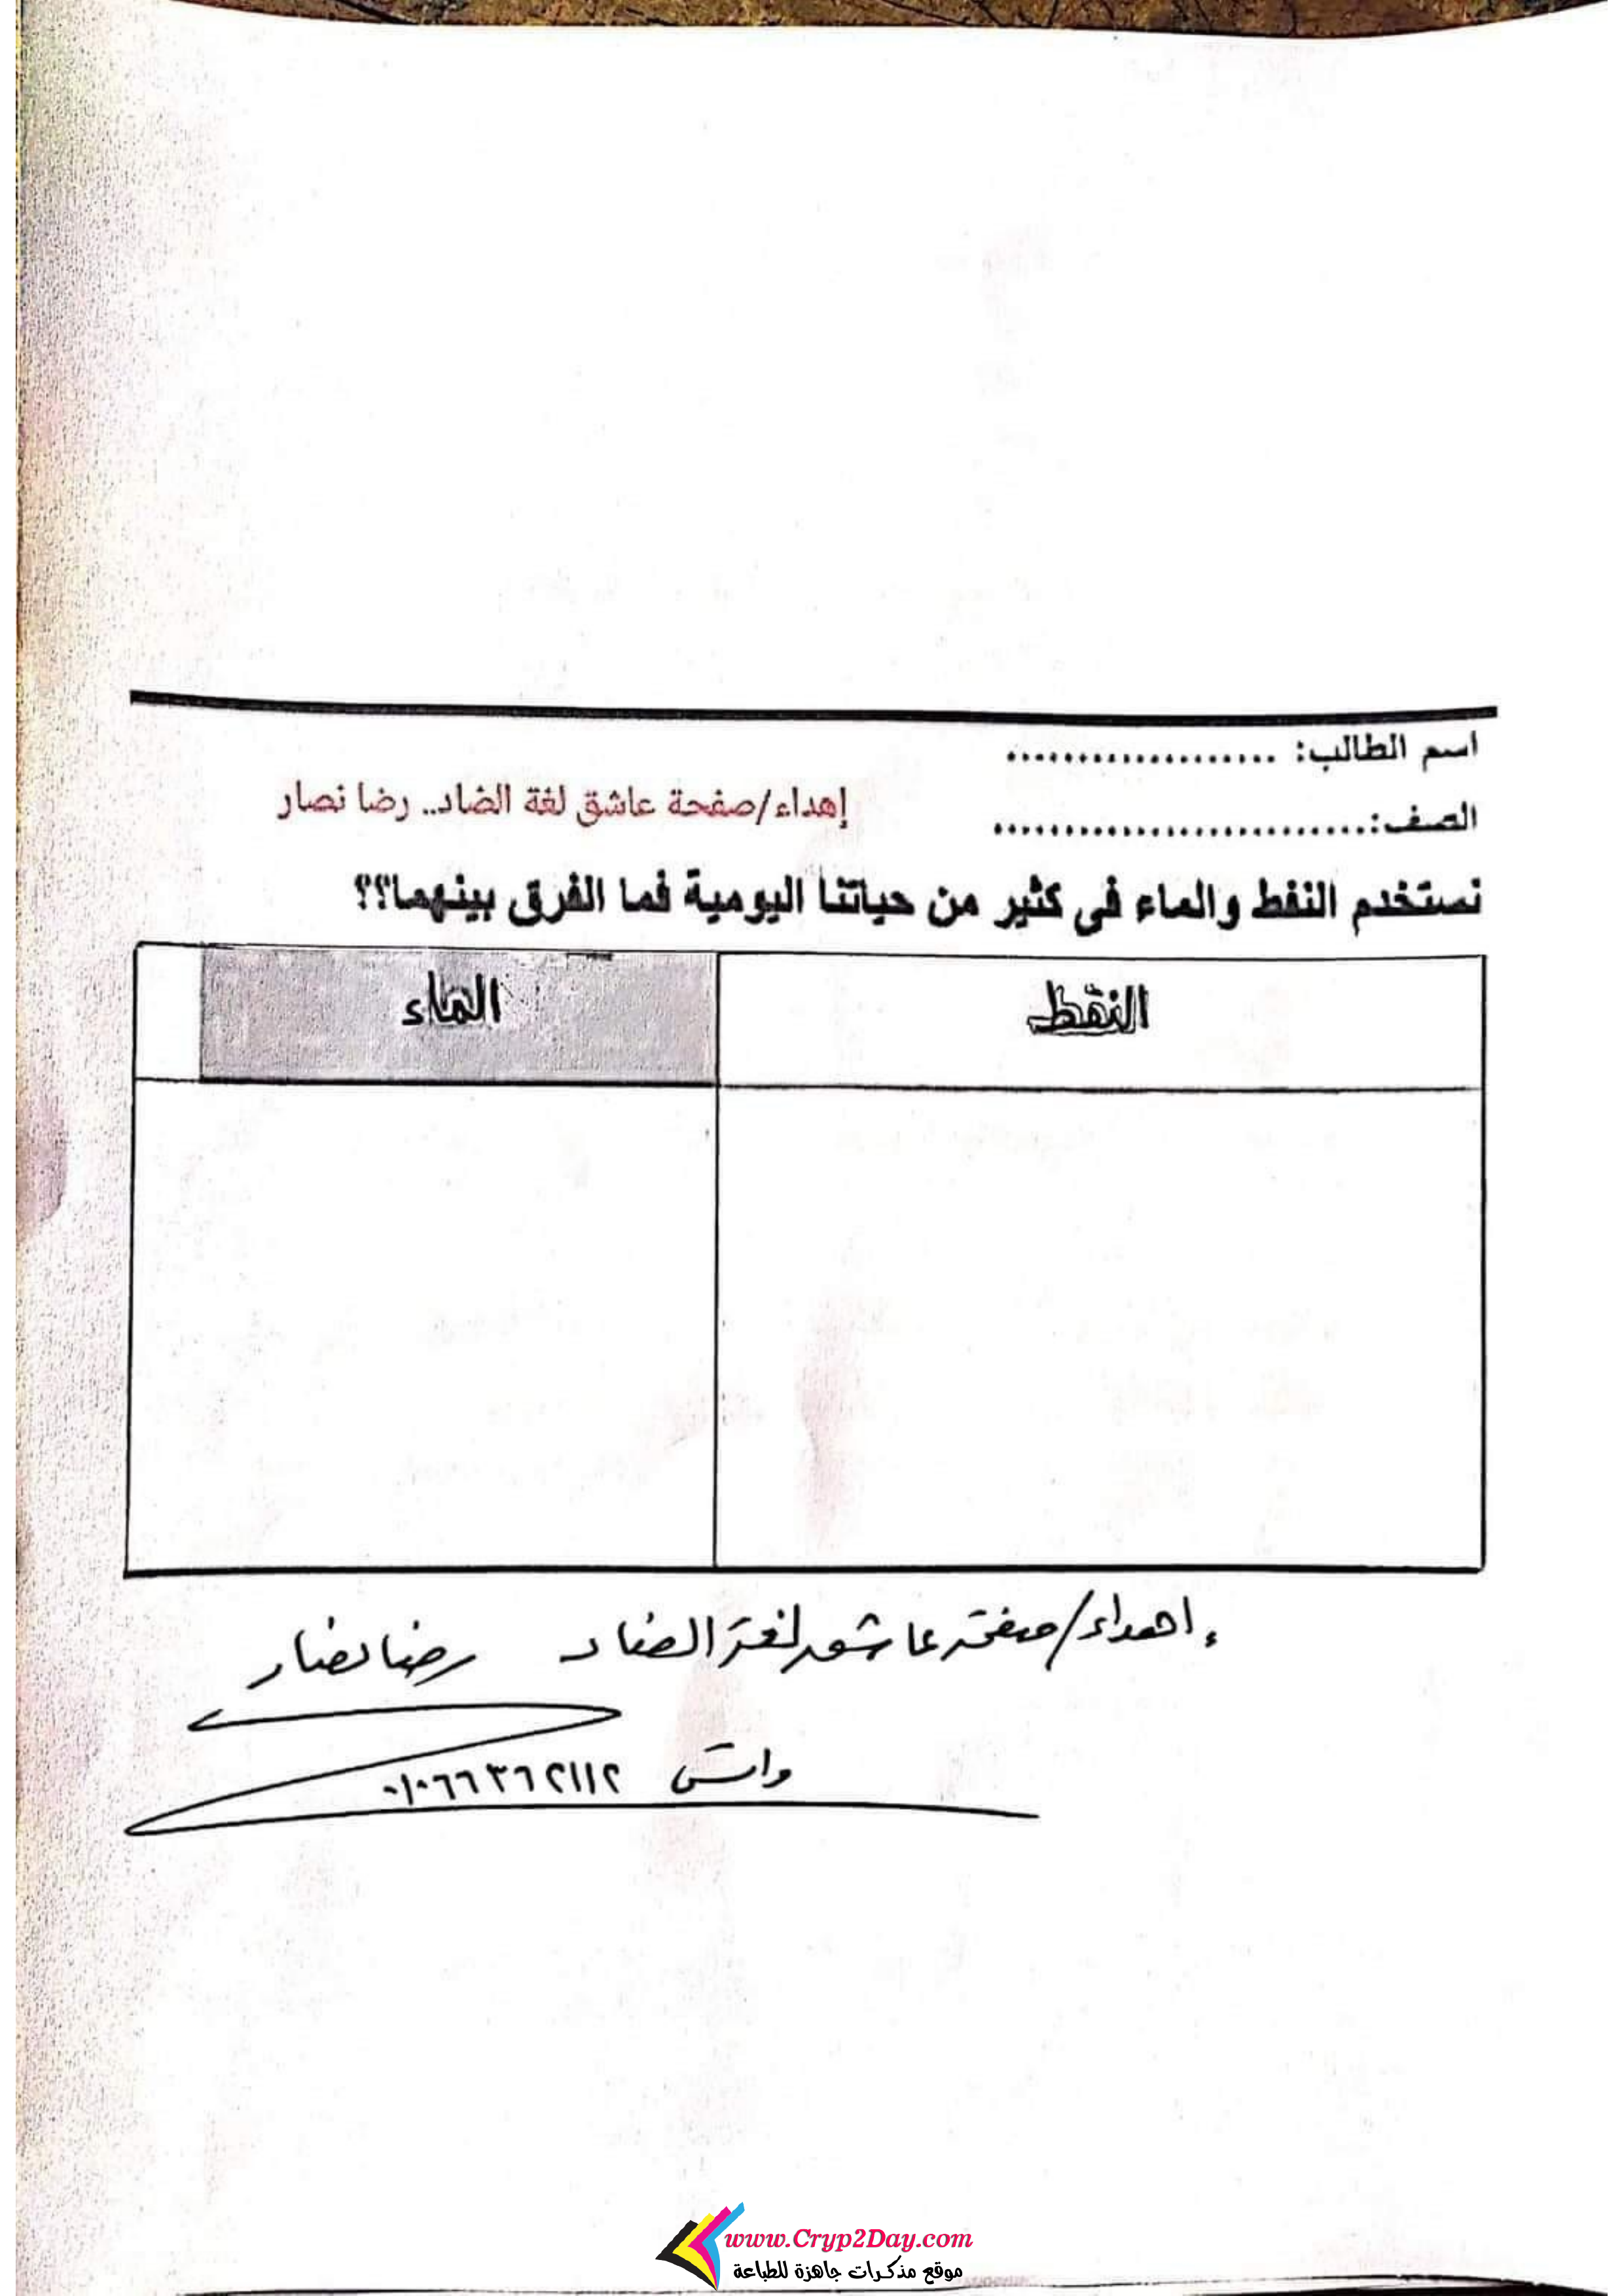 اسم الطالب: ...................
إهداء/صفحة عاشق لغة الضاد.. رضا نصار
الصف:..........................
نستخدم النفط والماء في كثير من حياتنا اليومية فما الفرق بينهما؟؟
النفط
الماء
إهداء/صفحة عاشق لغة الضاد رضا نصار
واتس ٠١٠٦٦٣٦٢١١٢
www.Cryp2Day.com
موقع مذكرات جاهزة للطباعة